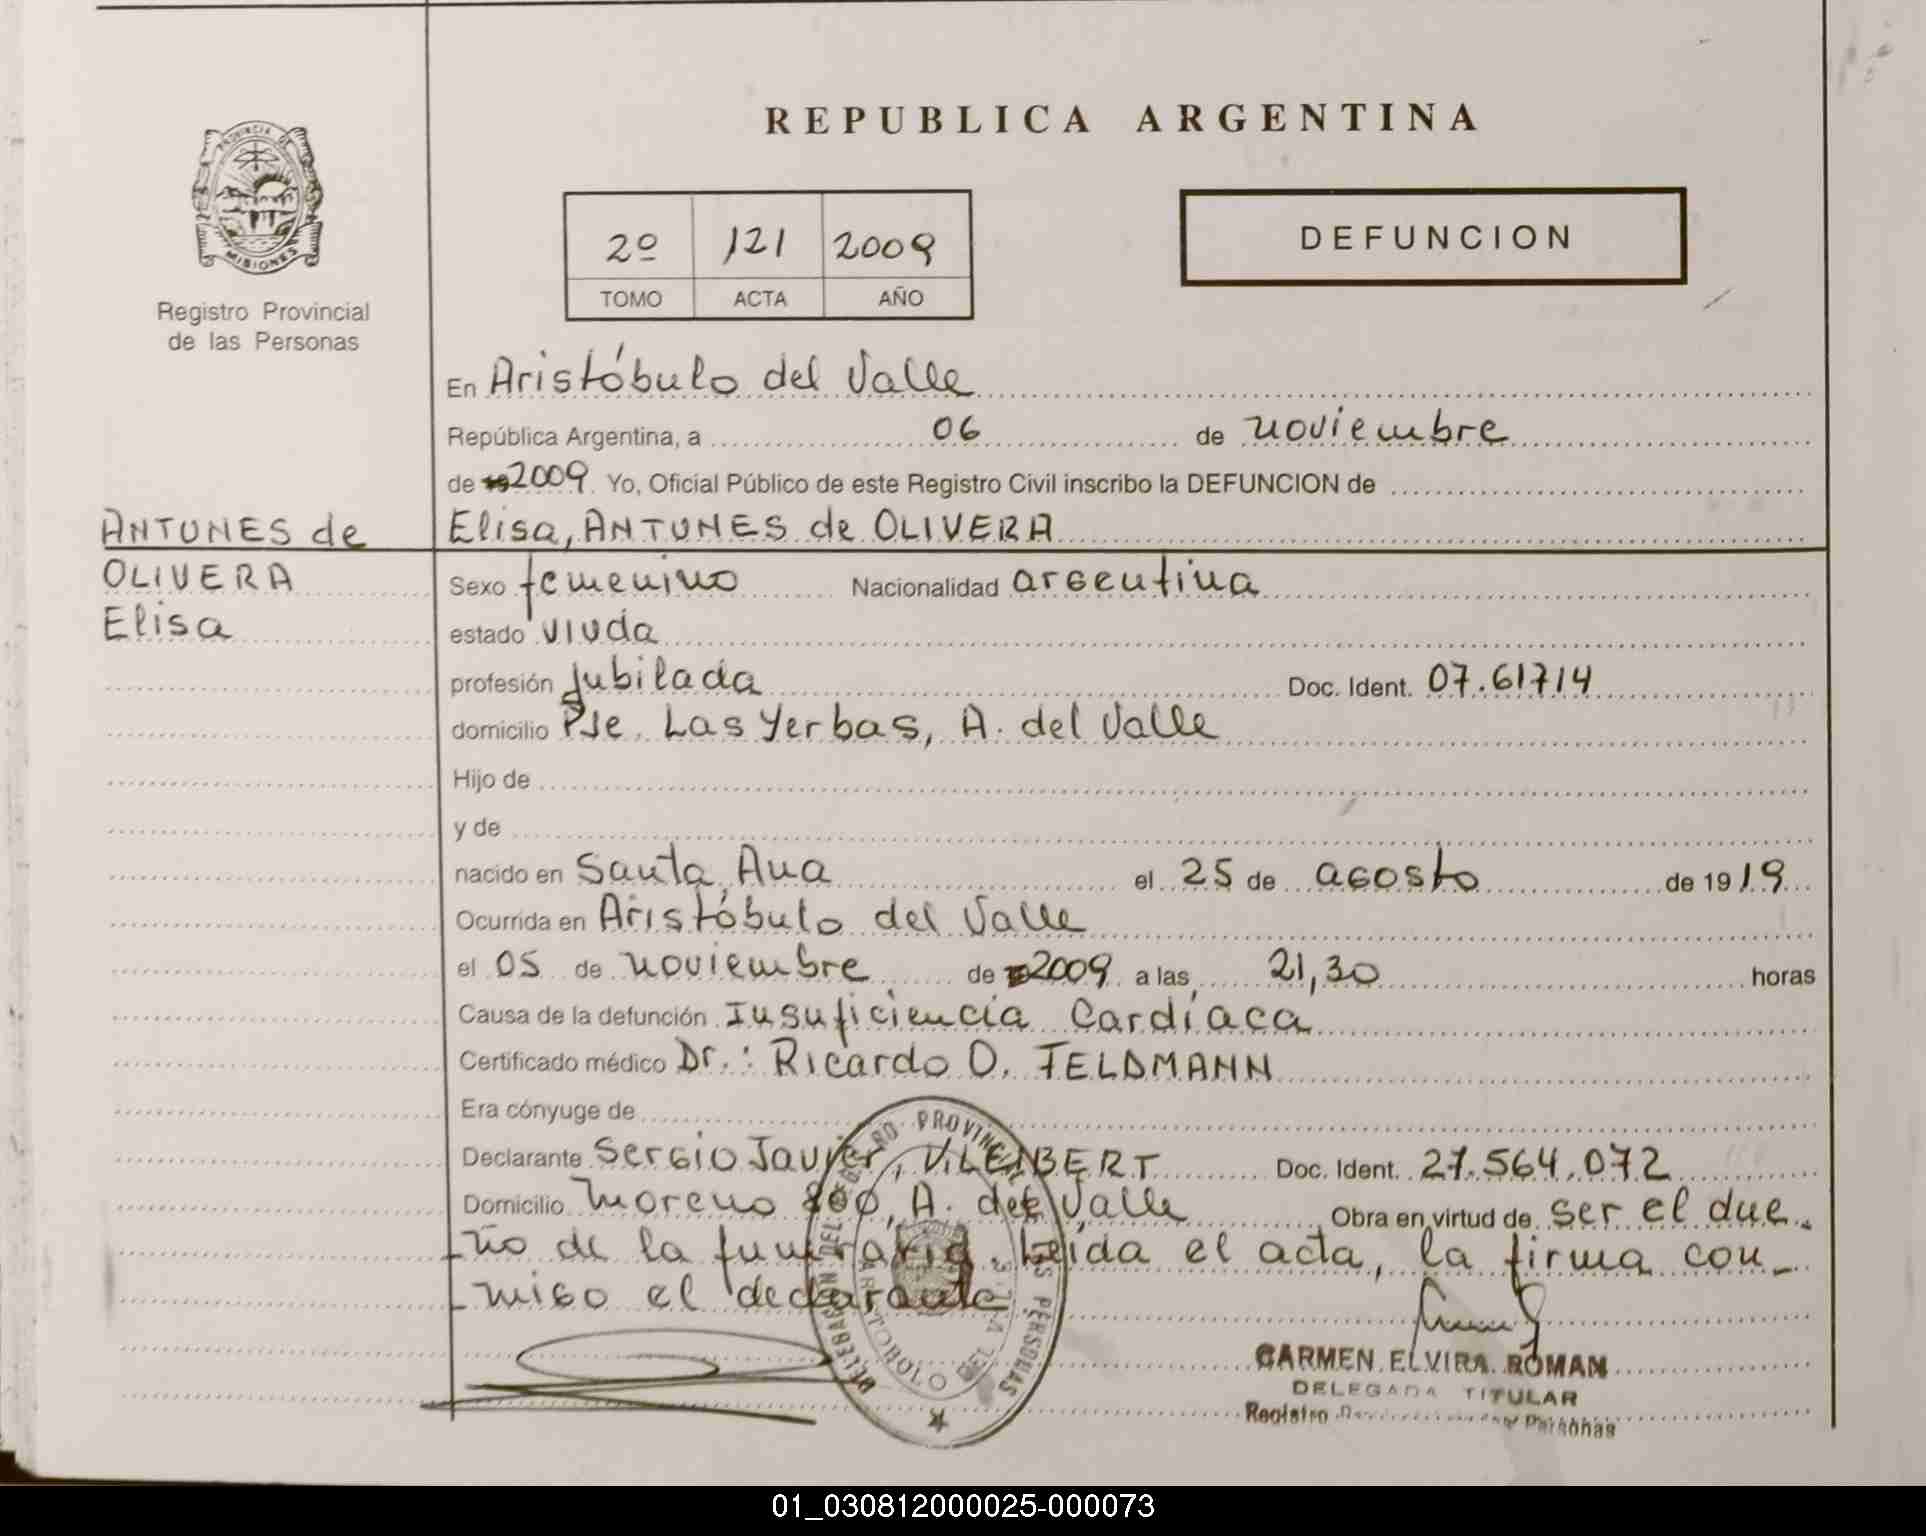 REPUBLICA ARGENTINA
PROVINCIA DE
MISIONES
Registro Provincial
de las Personas
2º 121 2009
TOMO ACTA AÑO
DEFUNCION
En Aristóbulo del Valle
República Argentina, a 06 de noviembre
de 2009. Yo, Oficial Público de este Registro Civil inscribo la DEFUNCION de
ANTUNES de
OLIVERA
Elisa
Elisa, ANTUNES de OLIVERA
Sexo femenino Nacionalidad argentina
estado viuda
profesión jubilada Doc. Ident. 07.61714
domicilio Pje. Las Yerbas, A. del Valle
Hijo de
y de
nacido en Santa Ana el 25 de agosto de 1919
Ocurrida en Aristóbulo del Valle
el 05 de noviembre de 2009 a las 21,30 horas
Causa de la defunción Insuficiencia Cardíaca
Certificado médico Dr.: Ricardo O. FELDMANN
Era cónyuge de
Declarante Sergio Javier, VILEMBERT Doc. Ident. 27.564.072
Domicilio Moreno 800, A. del Valle Obra en virtud de ser el due-
-ño de la funeraria. Leída el acta, la firma con-
-migo el declarante
CARMEN ELVIRA ROMAN
DELEGADA TITULAR
Registro Personas
01_030812000025-000073